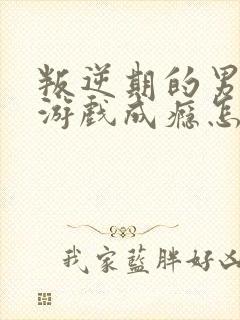 叛逆期的男
游戏成瘾怎
我家蓝胖好凶